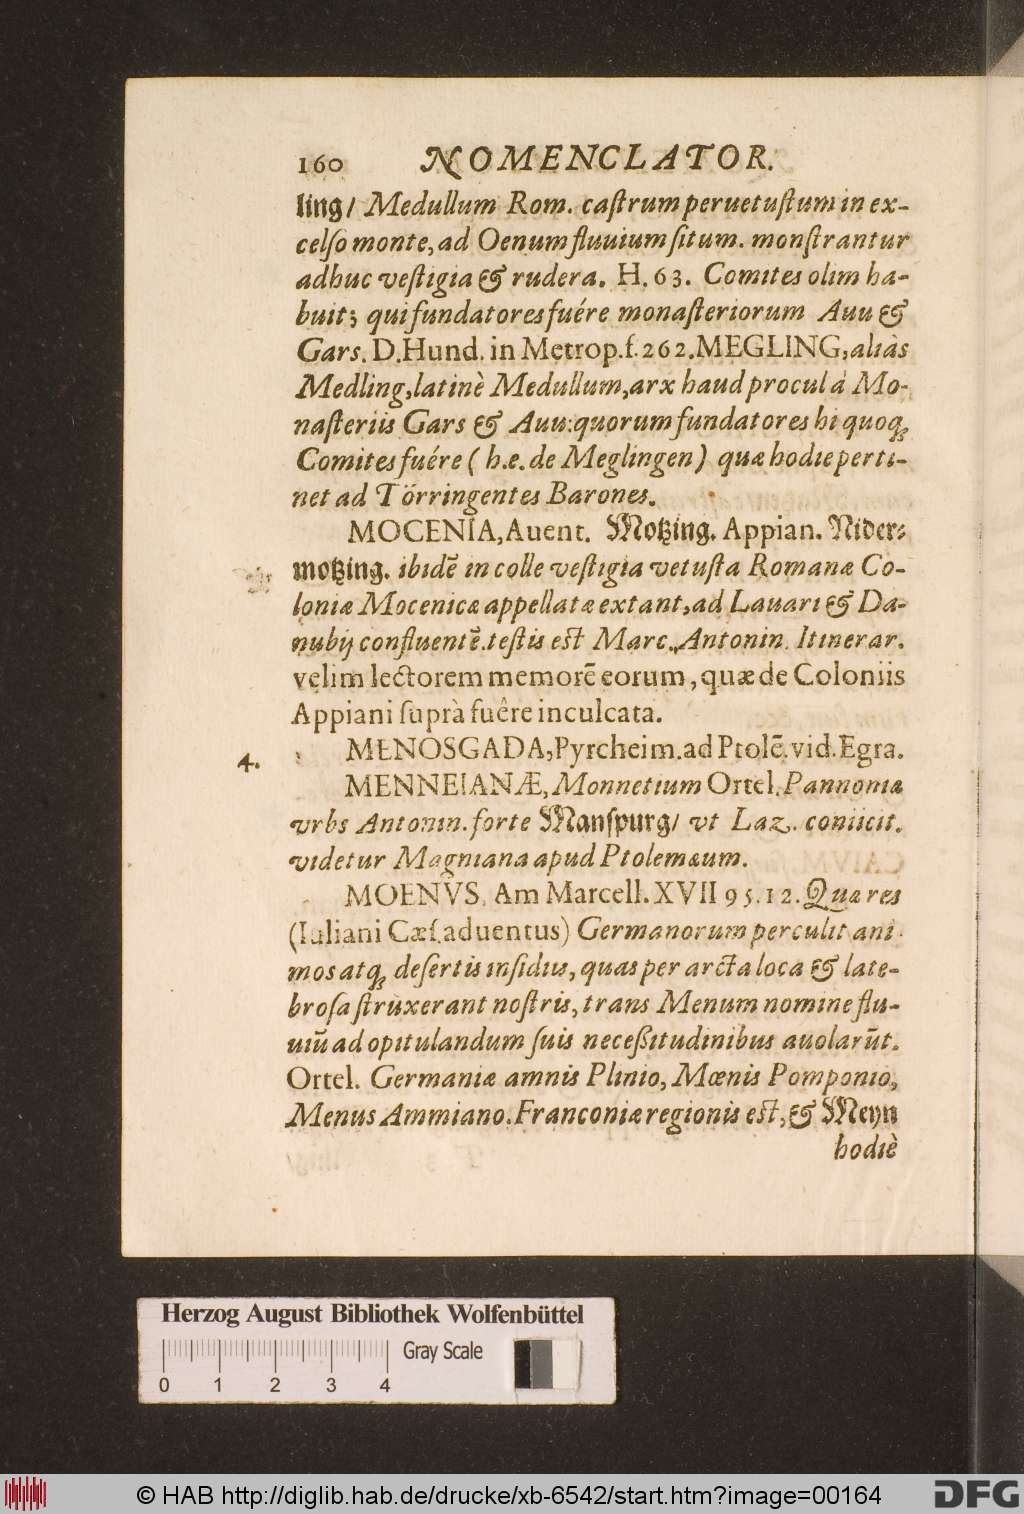 160 NOMENCLATOR.
ling/ Medullum Rom. caſtrum peruetuſtum in ex-
celſo monte, ad Oenum fluuium ſitum. monſtrantur
adhuc veſtigia & rudera. H. 63. Comites olim ha-
buit; qui fundatores fuére monaſteriorum Auu &
Gars. D. Hund. in Metrop. f. 262. MEGLING, aliàs
Medling, latinè Medullum, arx haud procul à Mo-
naſteriis Gars & Auu: quorum fundatores hi quoq;
Comites fuére (h. e. de Meglingen) quæ hodie perti-
net ad Törringentes Barones.
MOCENIA, Auent. Motzing. Appian. Nider-
motzing. ibidē in colle veſtigia vetuſta Romanæ Co-
loniæ Mocenicæ appellatæ extant, ad Lauari & Da-
nubij confluentē. teſtis eſt Marc. Antonin. Itinerar.
velim lectorem memorē eorum, quæ de Coloniis
Appiani ſuprà fuêre inculcata.
4. MENOSGADA, Pyrcheim. ad Ptolē. vid. Egra.
MENNEIANÆ, Monnetium Ortel. Pannoniæ
vrbs Antonin. forte Manſpurg/ vt Laz. coniicit.
videtur Magniana apud Ptolemæum.
MOENVS, Am Marcell. XVII 95. 12. Quæ res
(Iuliani Cæſ. aduentus) Germanorum perculit ani-
mos atq; deſertis inſidiis, quas per arcta loca & late-
broſa ſtruxerant noſtris, trans Menum nomine flu-
uiū ad opitulandum ſuis neceßitudinibus auolarūt.
Ortel. Germaniæ amnis Plinio, Mœnis Pomponio,
Menus Ammiano. Franconiæ regionis eſt, & Meyn
hodiè
Herzog August Bibliothek Wolfenbüttel
Gray Scale
0 1 2 3 4
© HAB http://diglib.hab.de/drucke/xb-6542/start.htm?image=00164
DFG